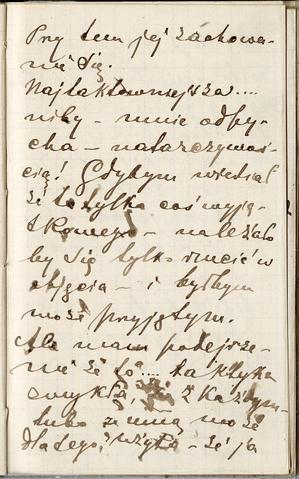 Przy tem jej zachowa-
nie się.
Najtaktowniejsza....
niby – mnie odpy-
cha – natarczywoś-
cią! Gdybym wiedział
że to tylko coś wyją-
tkowego – należało
by się tylko rzucić w
objęcia – i byłbym
może przyjętym.
Ale mam podejrze-
nie że to.... taktyka
zwykła, z każdym –
tylko ze mną może
dlatego, – że ja